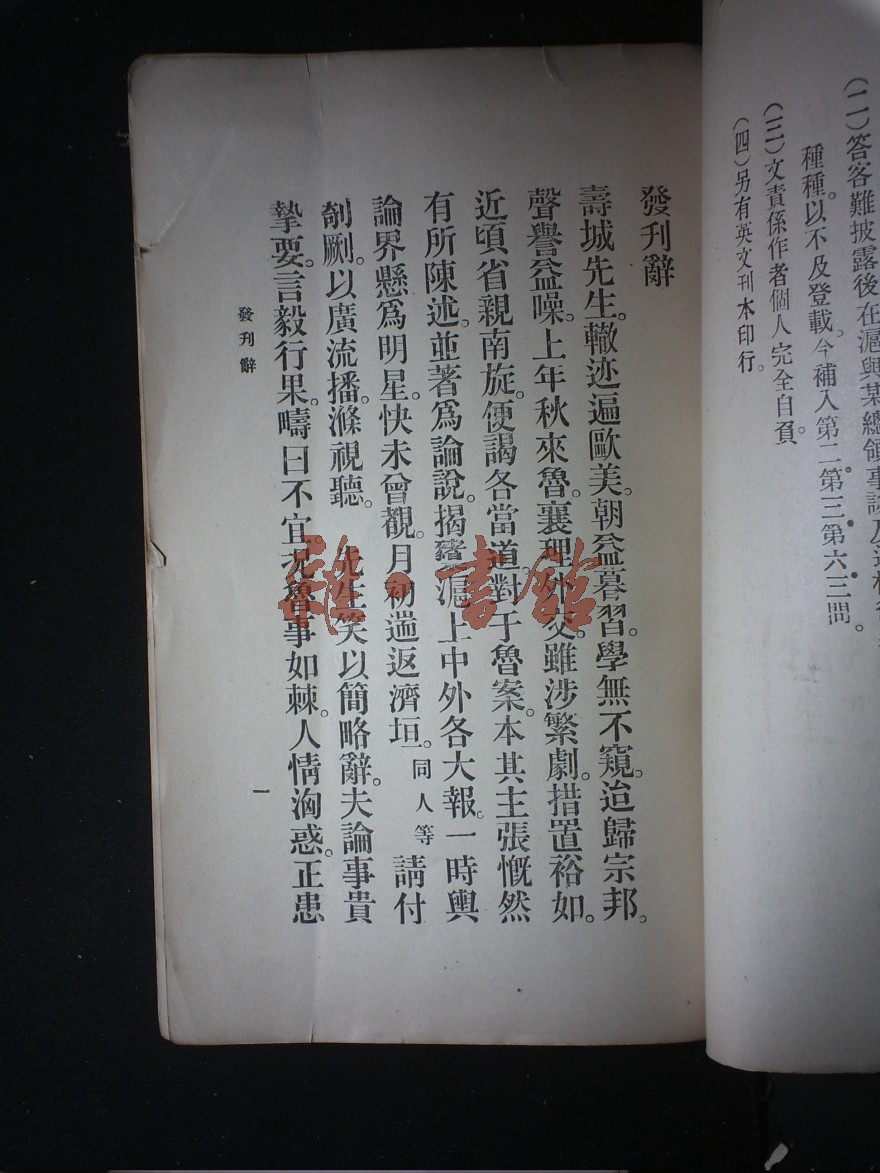 (二)答客難披露後在滬與某總領事談及
種種。以不及登載。今補入第二第三第六三問。
(三)文責係作者個人完全自負。
(四)另有英文刊本印行。
發刊辭
壽城先生。轍迹遍歐美。朝益暮習。學無不窺。迨歸宗邦。
聲譽益噪。上年秋來魯。襄理外交。雖涉繁劇。措置裕如。
近頃省親南旋。便謁各當道。對于魯案。本其主張慨然
有所陳述。並著爲論說。揭諸滬上中外各大報。一時輿
論界懸爲明星。快未曾覩。月初遄返濟垣。同人等請付
剞劂。以廣流播。滌視聽。 先生笑以簡略辭。夫論事貴
摯要。言毅行果。疇曰不宜。况魯事如棘。人情洶惑。正患
發刊辭
一
雜·書館